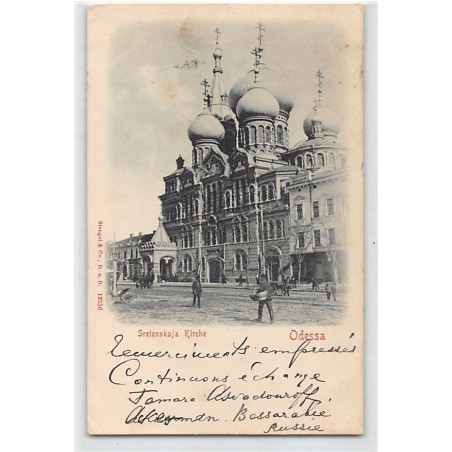 Stengel & Co., D. u. B. 12556
Sretenskaja Kirche
Odessa
Remerciments empressés
Continuons échange
Tamara Asvadouroff,
Bessarabie
Russie